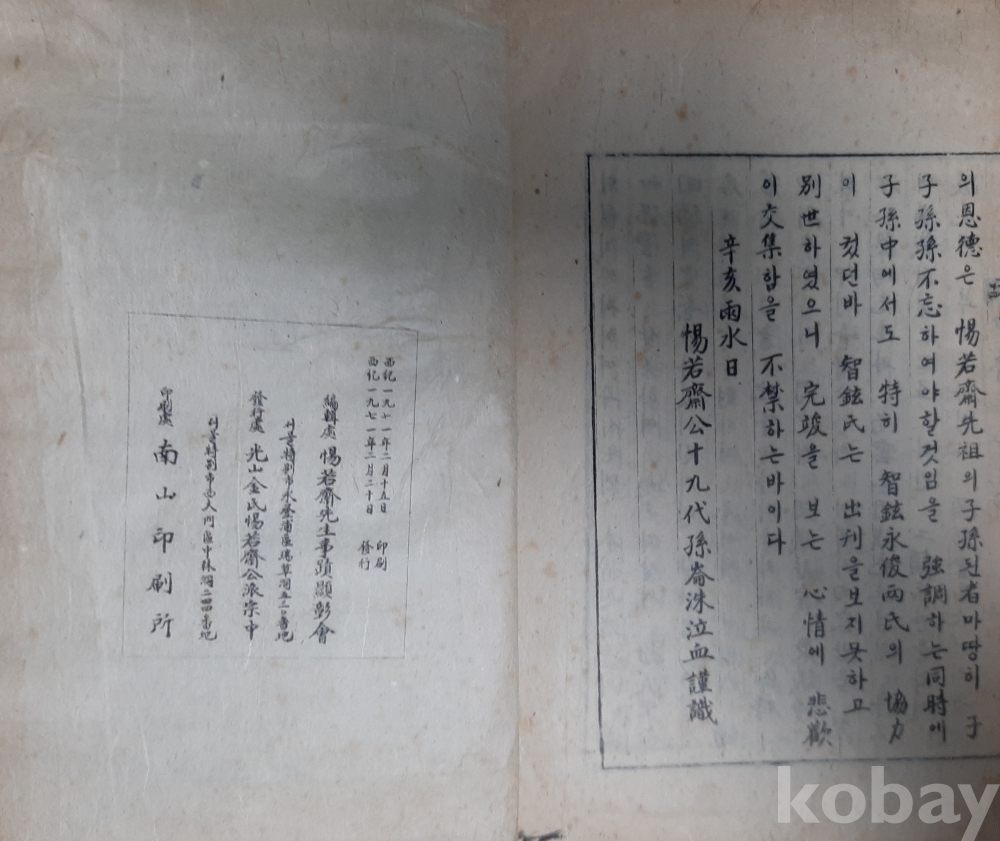 의恩德은 惕若齋先祖의子孫된者마땅히 子
子孫孫不忘하여야할것임을 強調하는同時에
子孫中에서도 特히 智鉉永俊両氏의 協力
이 컸던바 智鉉氏는 出刊을보지못하고
別世하였으니 完竣을 보는 心情에 悲歡
이交集함을 不禁하는바이다
辛亥雨水日
惕若齋公十九代孫崙洙泣血謹識
西紀一九七一年二月十五日 印刷
西紀一九七一年二月二十日 發行
編輯處 惕若齋先生事蹟顯彰會
서울特別市永登浦區瑞草洞
發行處 光山金氏惕若齋公派宗中
서울特別市西大門區中林洞二四四番地
印刷處 南山印刷所
kobay